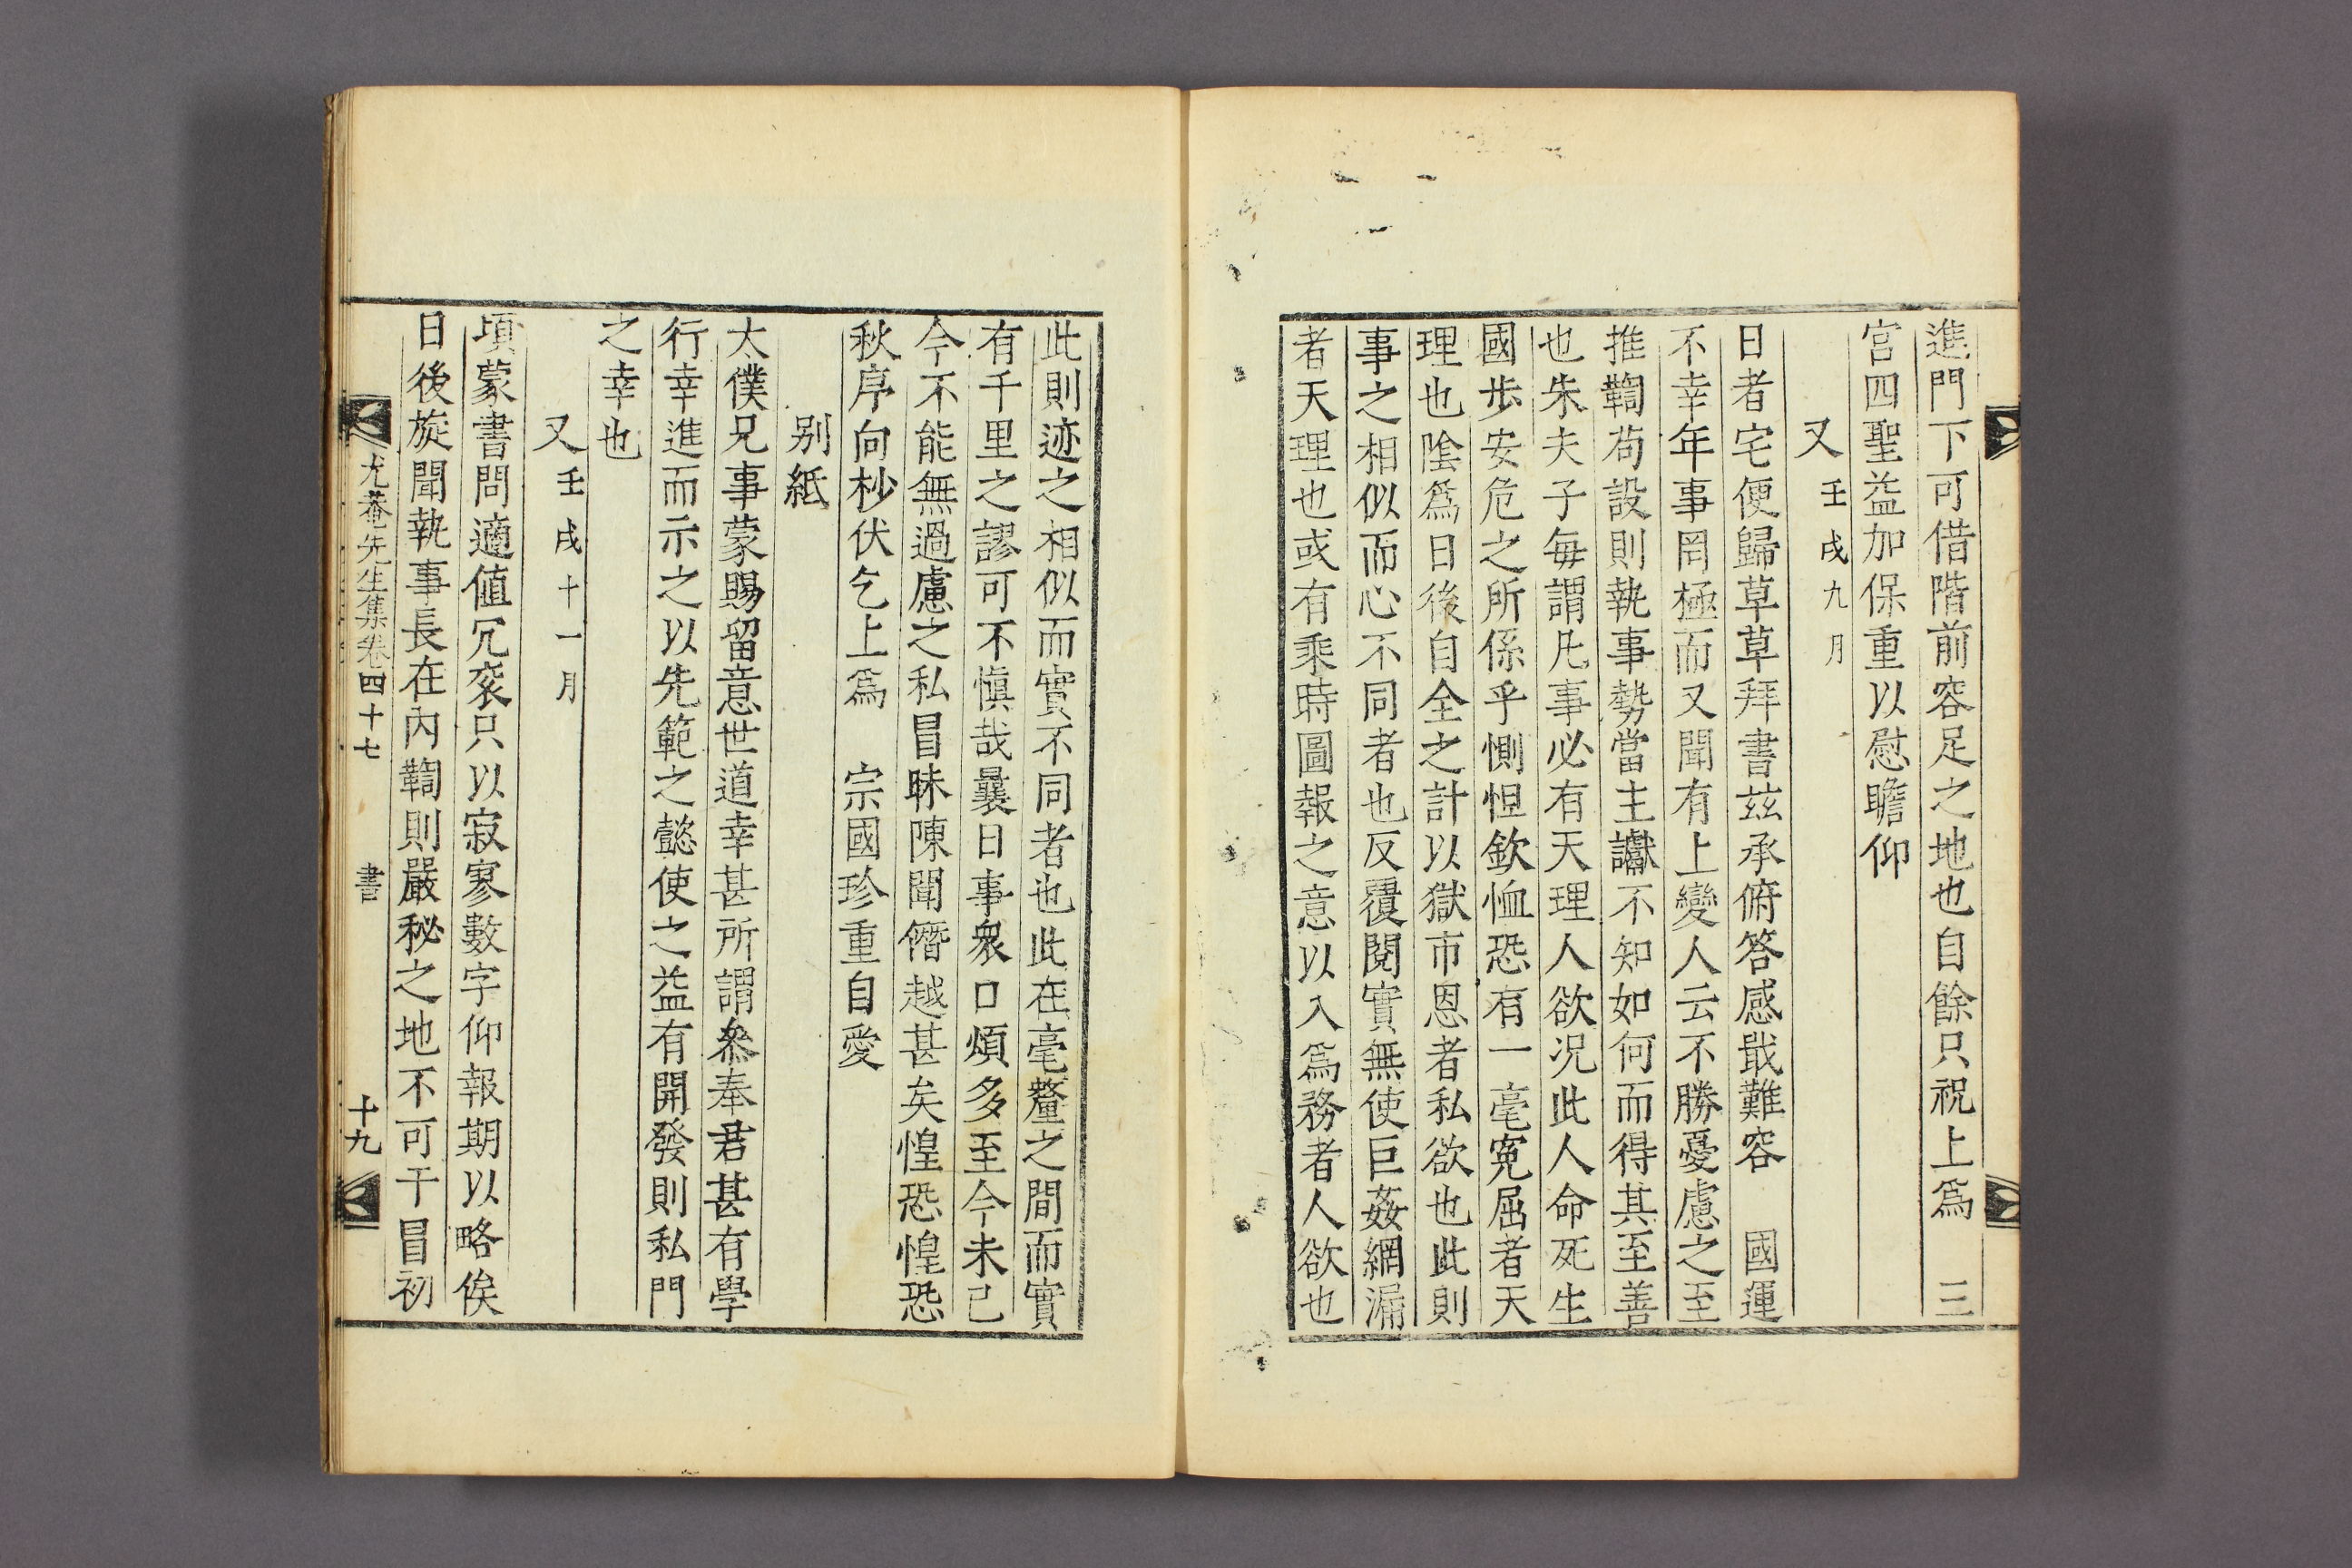 進門下可借階前容足之地也自餘只祝上爲 三
宮四聖益加保重以慰瞻仰
又 壬戌九月
日者宅便歸草草拜書玆承俯答感戢難容 國運
不幸年事罔極而又聞有上變人云不勝憂慮之至
推鞫苟設則執事勢當主讞不知如何而得其至善
也朱夫子每謂凡事必有天理人欲况此人命死生
國步安危之所係乎惻怛欽恤恐有一毫寃屈者天
理也陰爲日後自全之計以獄市恩者私欲也此則
事之相似而心不同者也反覆閱實無使巨姦網漏
者天理也或有乘時圖報之意以入爲務者人欲也
此則迹之相似而實不同者也此在毫釐之間而實
有千里之謬可不愼哉曩日事衆口煩多至今未已
今不能無過慮之私冒昧陳聞僭越甚矣惶恐惶恐
秋序向杪伏乞上爲 宗國珍重自愛
別紙
太僕兄事蒙賜留意世道幸甚所謂叅奉君甚有學
行幸進而示之以先範之懿使之益有開發則私門
之幸也
又 壬戌十一月
頃蒙書問適値冗褎只以寂寥數字仰報期以略俟
日後旋聞執事長在內鞫則嚴秘之地不可干冒初
尤菴先生集卷四十七 書 十九